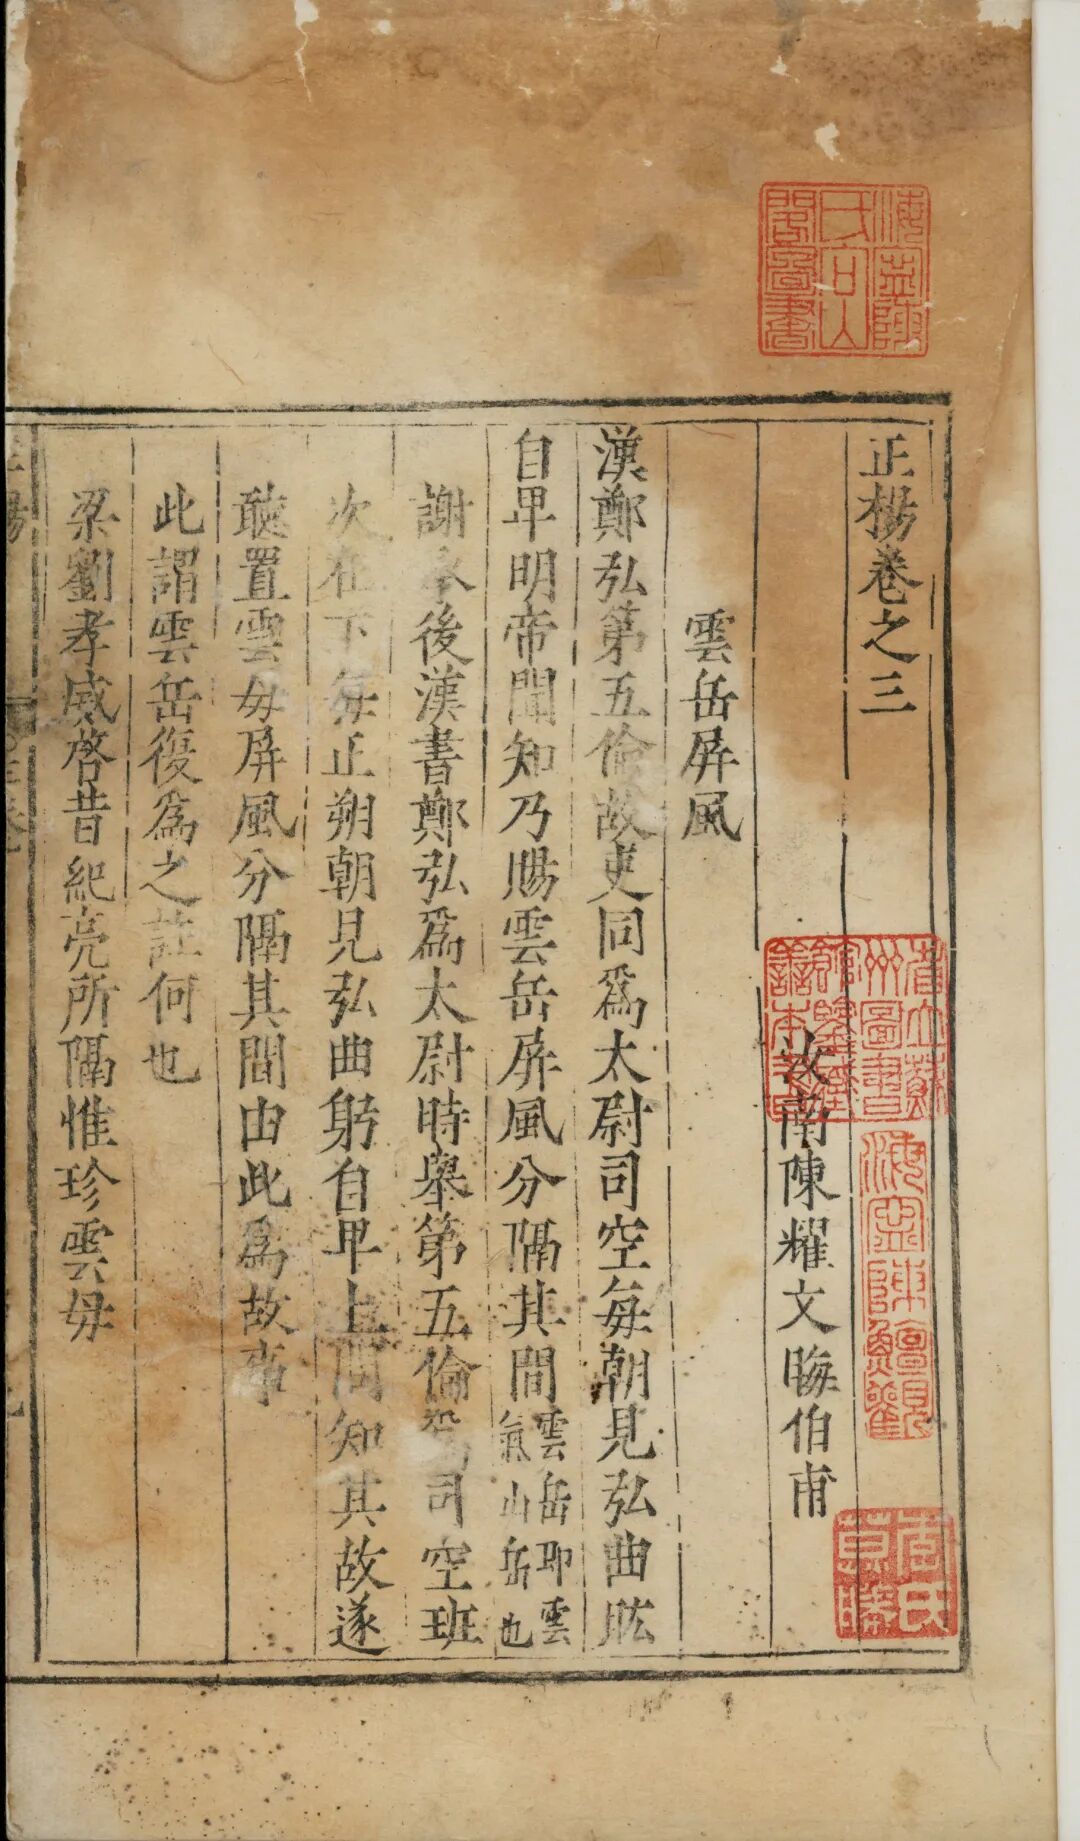 海寧陳
氏向山
閣圖書
正楊卷之三
省立蘇
州圖書
館藏
善本
海寧陳鱣觀
汝南陳耀文晦伯甫
雲岳屏風
漢鄭弘第五倫故吏同爲太尉司空每朝見弘曲肱
自卑明帝聞知乃賜雲岳屏風分隔其間雲岳即雲
氣山岳也
謝承後漢書鄭弘爲太尉時舉第五倫爲司空班
次在下每正朔朝見弘曲躬自卑上問知其故遂
聽置雲母屏風分隔其間由此爲故事
此謂雲岳復爲之註何也
梁劉孝威啓昔紀亮所隔惟珍雲母